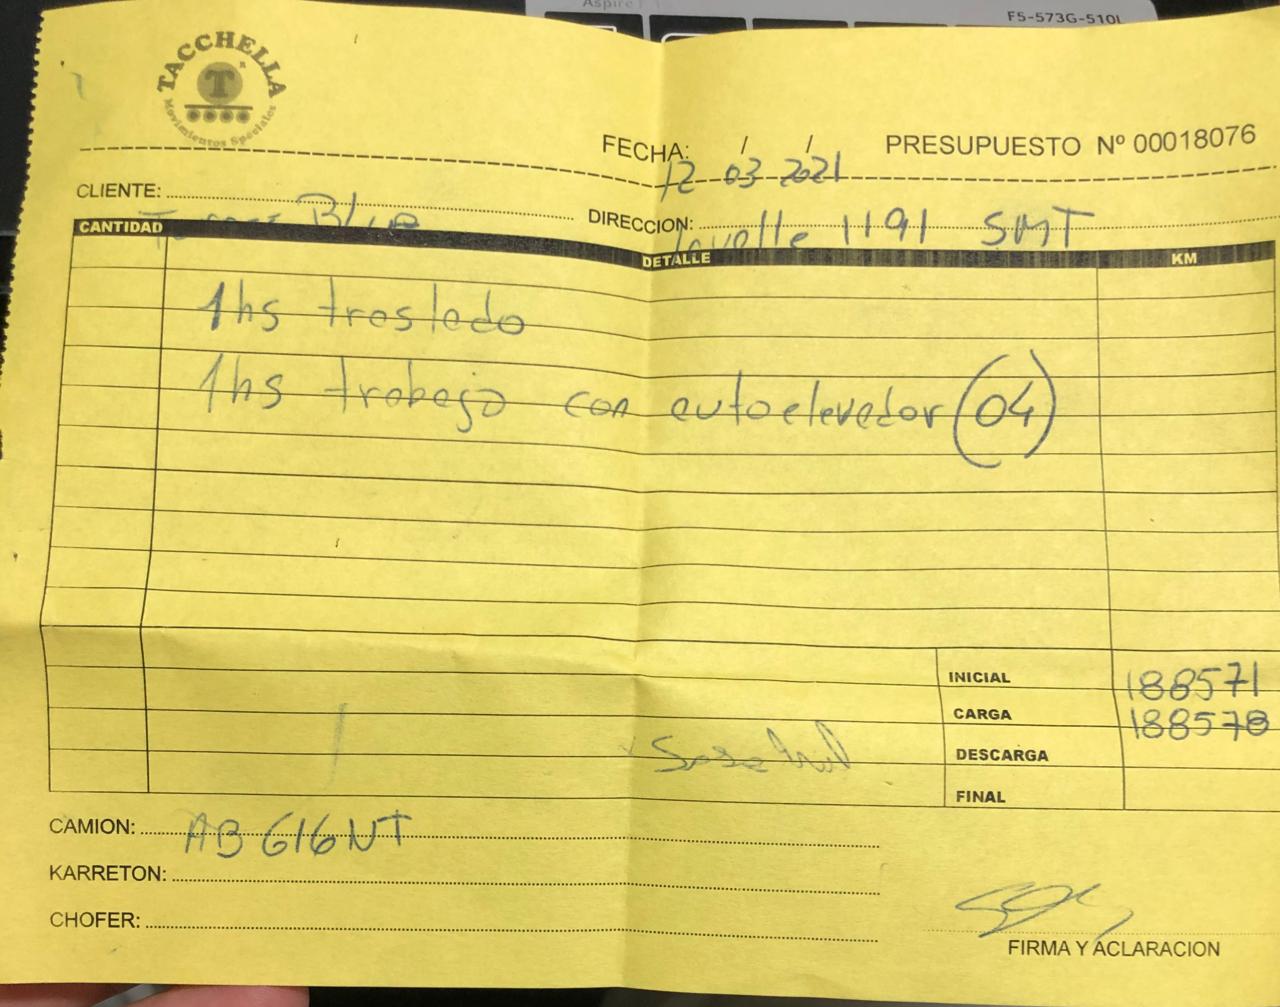 Aspire F
F5-573G-510L
TACCHELLA
T
Movimientos Especiales
FECHA: 12 / 03 / 2021
PRESUPUESTO Nº 00018076
CLIENTE: Blue
DIRECCION: lavalle 1191 SMT
CANTIDAD DETALLE KM
1hs traslado
1hs trabajo con autoelevador (04)
INICIAL 188571
CARGA 188578
DESCARGA
FINAL
CAMION: AB 616NT
KARRETON:
CHOFER:
FIRMA Y ACLARACION